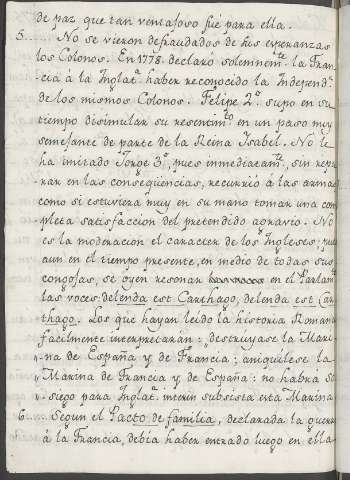 de paz que tan ventajoso fué para ella.
5...... No se vieron defraudados de sus esperanzas
los Colonos. En 1778. declaró solemnem.te la Fran-
cia á la Inglat.a haber reconocido la Independ.a
de los mismos Colonos. Felipe 2.o supo en su
tiempo disimular su resentim.to en un paso muy
semejante de parte de la Reina Isabel. No le
ha imitado Jorge 3.o, pues inmediatam.te, sin repa-
rar en las conseqüencias, recurrió á las armas
como si estuviera muy en su mano tomar una com-
pleta satisfaccion del pretendido agravio. No
es la moderacion el caracter de los Ingleses; pues
aun en el tiempo presente, en medio de todas sus
congojas, se oyen resonar en el Parlam.to
las voces delenda est Carthago, delenda est Car-
thago. Los que hayan leido la historia Romana
facilmente interpretarán: destruyase la Mari-
" na de España y de Francia; aniquilese la
" Marina de Francia y de España: no habrá so-
" siego para Inglat.a interin subsista esta Marina
6...... Segun el Pacto de familia, declarada la guerra
á la Francia, debía haber entrado luego en ella